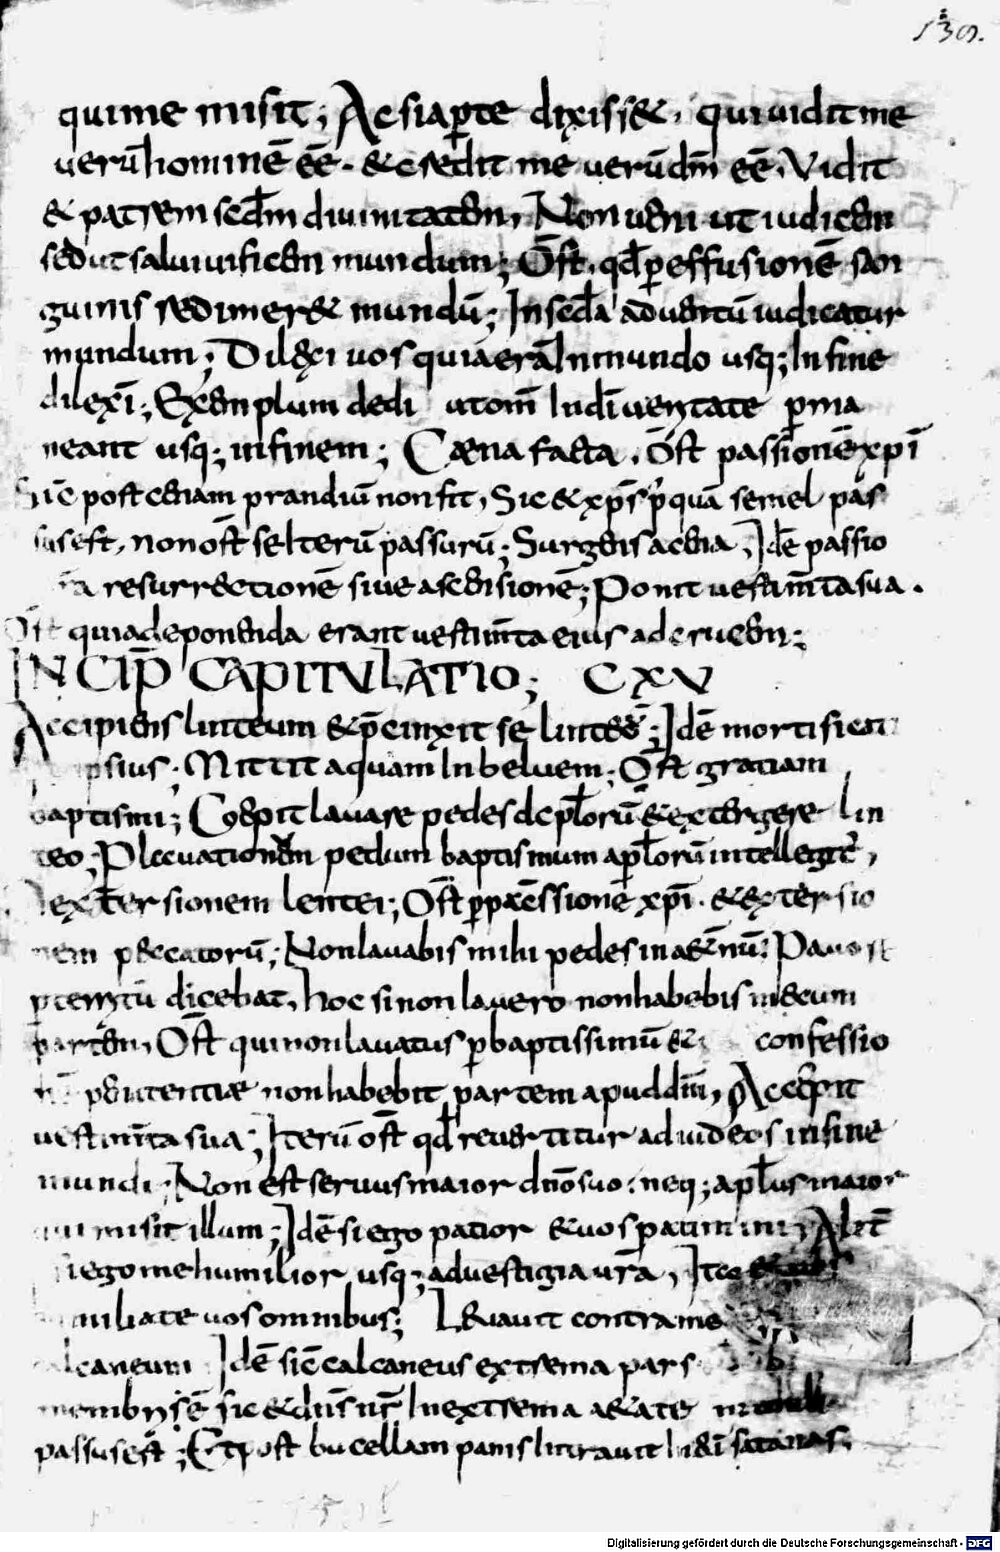 139.
qui me misit; Ac si apte dixiss&, qui uidit me
uerū hominē eē. & credit me uerū dm̄ eē, Vidit
& patrem scdm diuinitatem, Non ueni ut iudicem
sed ut saluiuificem mundum; Ost, qd p effusionē san
guinis redimer& mundū; In scda aduentū iudicatur
mundum; Dilexi uos quia erā In mundo usq; In fine
dilexī; Exemplum dedi ut om̄ In diuersitate pma
neant usq; in finem; Cæna facta, ost passionē xpī
Sic post cenam prandiū non fit, Sic & xps p quā semel pas
sus est, non ost se Iterū passurū; Surgens a cena, Idē passio
resurrectionē siue ascensionē; Ponit uestim̄ta sua.
Ost quia deponenda erant uestim̄ta eius ad crucem;
INCIP CAPITULATIO; CXV
Accipiens linteum & p̄cinxit se linteo; Idē mortifica
ipsius; Mittit aquam In beluem; Ost gratiam
baptismi; Coepit lauare pedes dcplorū & extergere lin
teo; P lecuationem pedum baptismum aplorū intellegit,
extersionem lentei; Ost p passionē xpī. & extersio
nem peccatorū; Non lauabis mihi pedes in aeternū; Pauor
dicebat, hoc si non lauero non habebis mecum
partem, Ost qui non lauatus p baptissimū & confessio
penitentiæ non habebit partem apud dm̄, Accepit
uestim̄ta sua; Iterū ost qd reuertitur ad iudeos in fine
mundi; Non est seruus maior dno suo; neq; aplus maior
qui misit illum; Idē si ego patior & uos patimini; Alit
si ego me humilior usq; ad uestigia ura, Ite
humiliate uos omnibus; Leuauit contra me
calcaneum Idē sic calcaneus extrema pars
membris ē sic & dns nr In extrema aetate
passus est; Et post bucellam panis Intrauit In eū satanas.
Digitalisierung gefördert durch die Deutsche Forschungsgemeinschaft - DFG